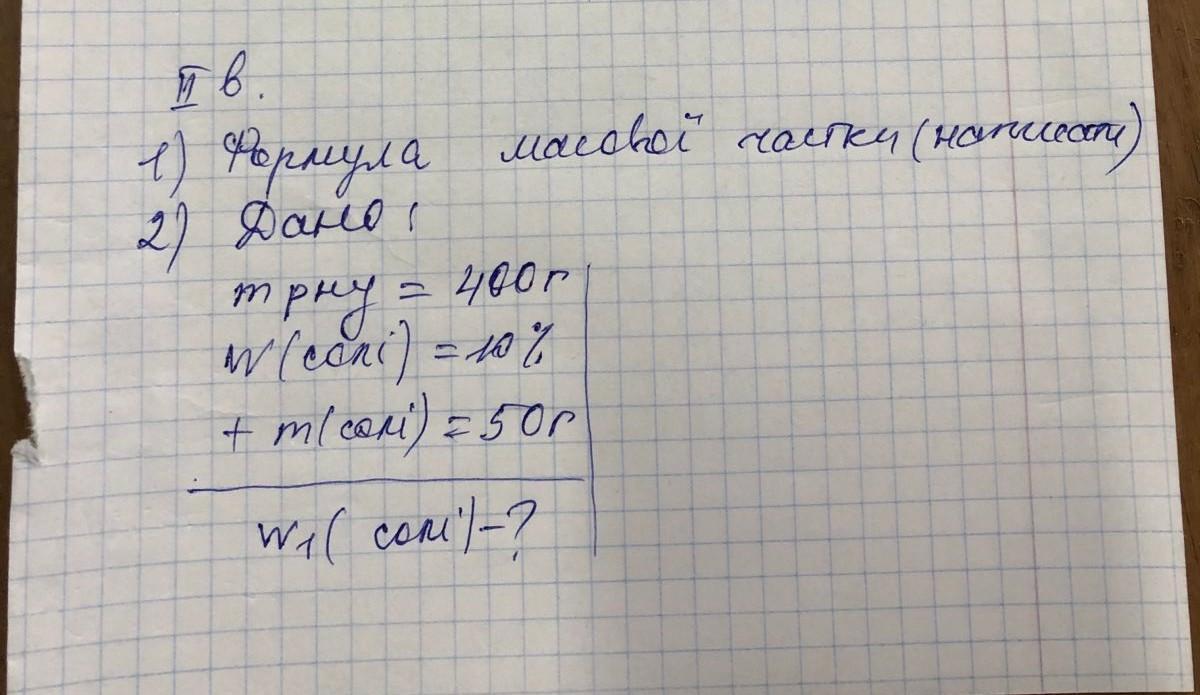 II в.
1) Формула масової частки (написати)
2) Дано:
m рну = 400г
W (солі) = 10%
+ m (солі) = 50г
W₁ ( солі) – ?